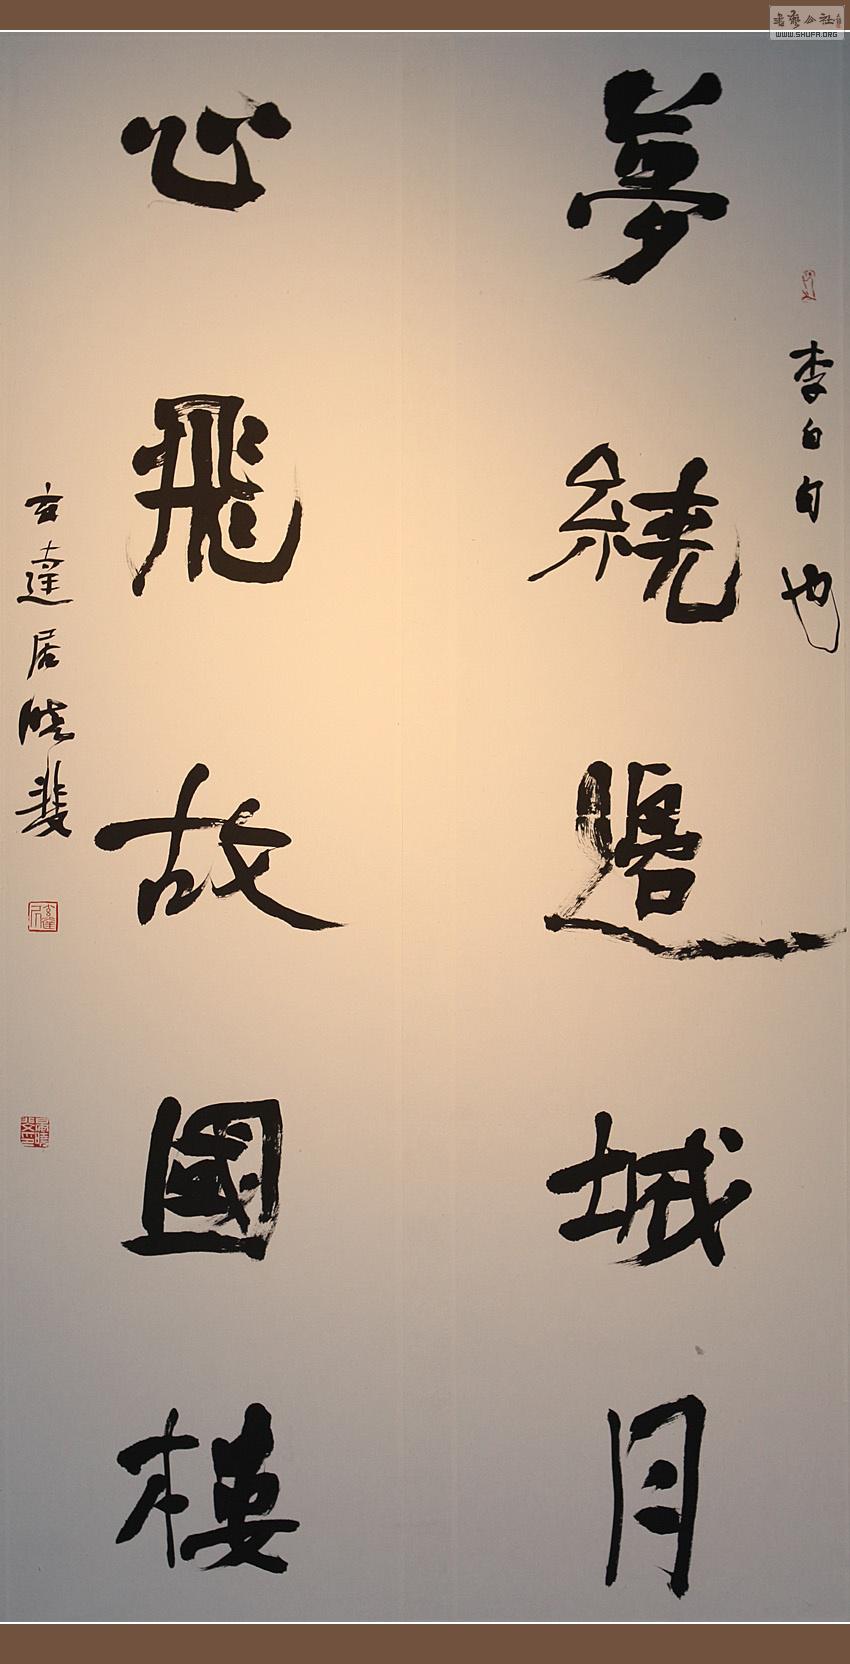 李白句也
夢繞邊城月
心飛故國樓
玄達居曉斐
書藝公社
WWW.SHUFA.ORG